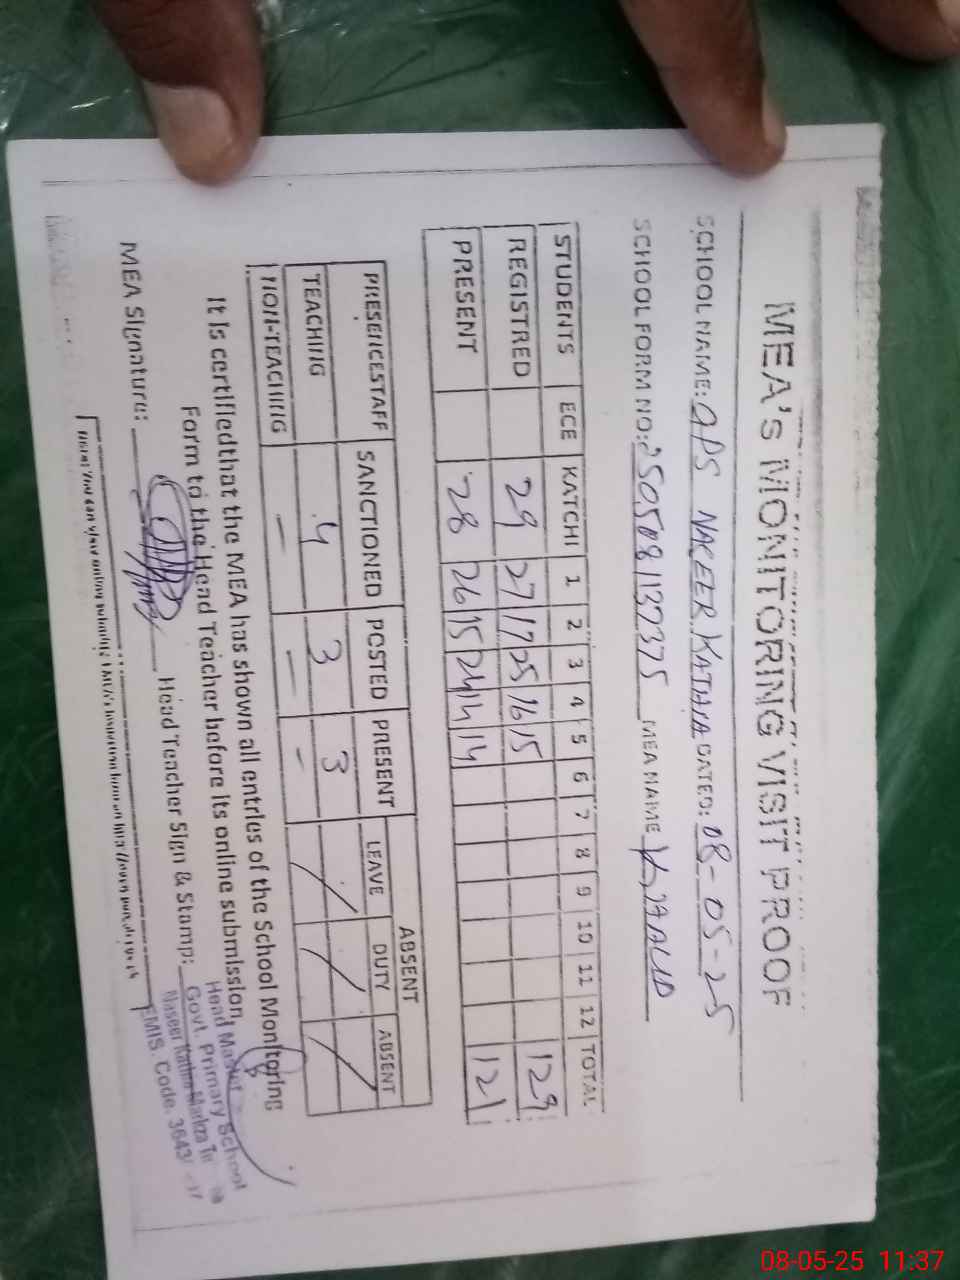 MEA'S MONITORING VISIT PROOF
SCHOOL NAME: GPS NASEER KATHIA DATED: 08-05-25
SCHOOL FORM NO: 250508132375 MEA NAME KHALID
STUDENTS ECE KATCHI 1 2 3 4 5 6 7 8 9 10 11 12 TOTAL
REGISTRED 29 27 17 25 16 15 129
PRESENT 28 26 15 24 14 14 121
PRESENCESTAFF SANCTIONED POSTED PRESENT ABSENT
LEAVE DUTY ABSENT
TEACHING 4 3 3 / / /
NON-TEACHING — — —
It is certifiedthat the MEA has shown all entries of the School Monitoring
Form to the Head Teacher before its online submission
MEA Signature: Head Teacher Sign & Stamp:
Head Master
Govt. Primary School
Naseer Kathia
EMIS. Code. 3643
08-05-25 11:37